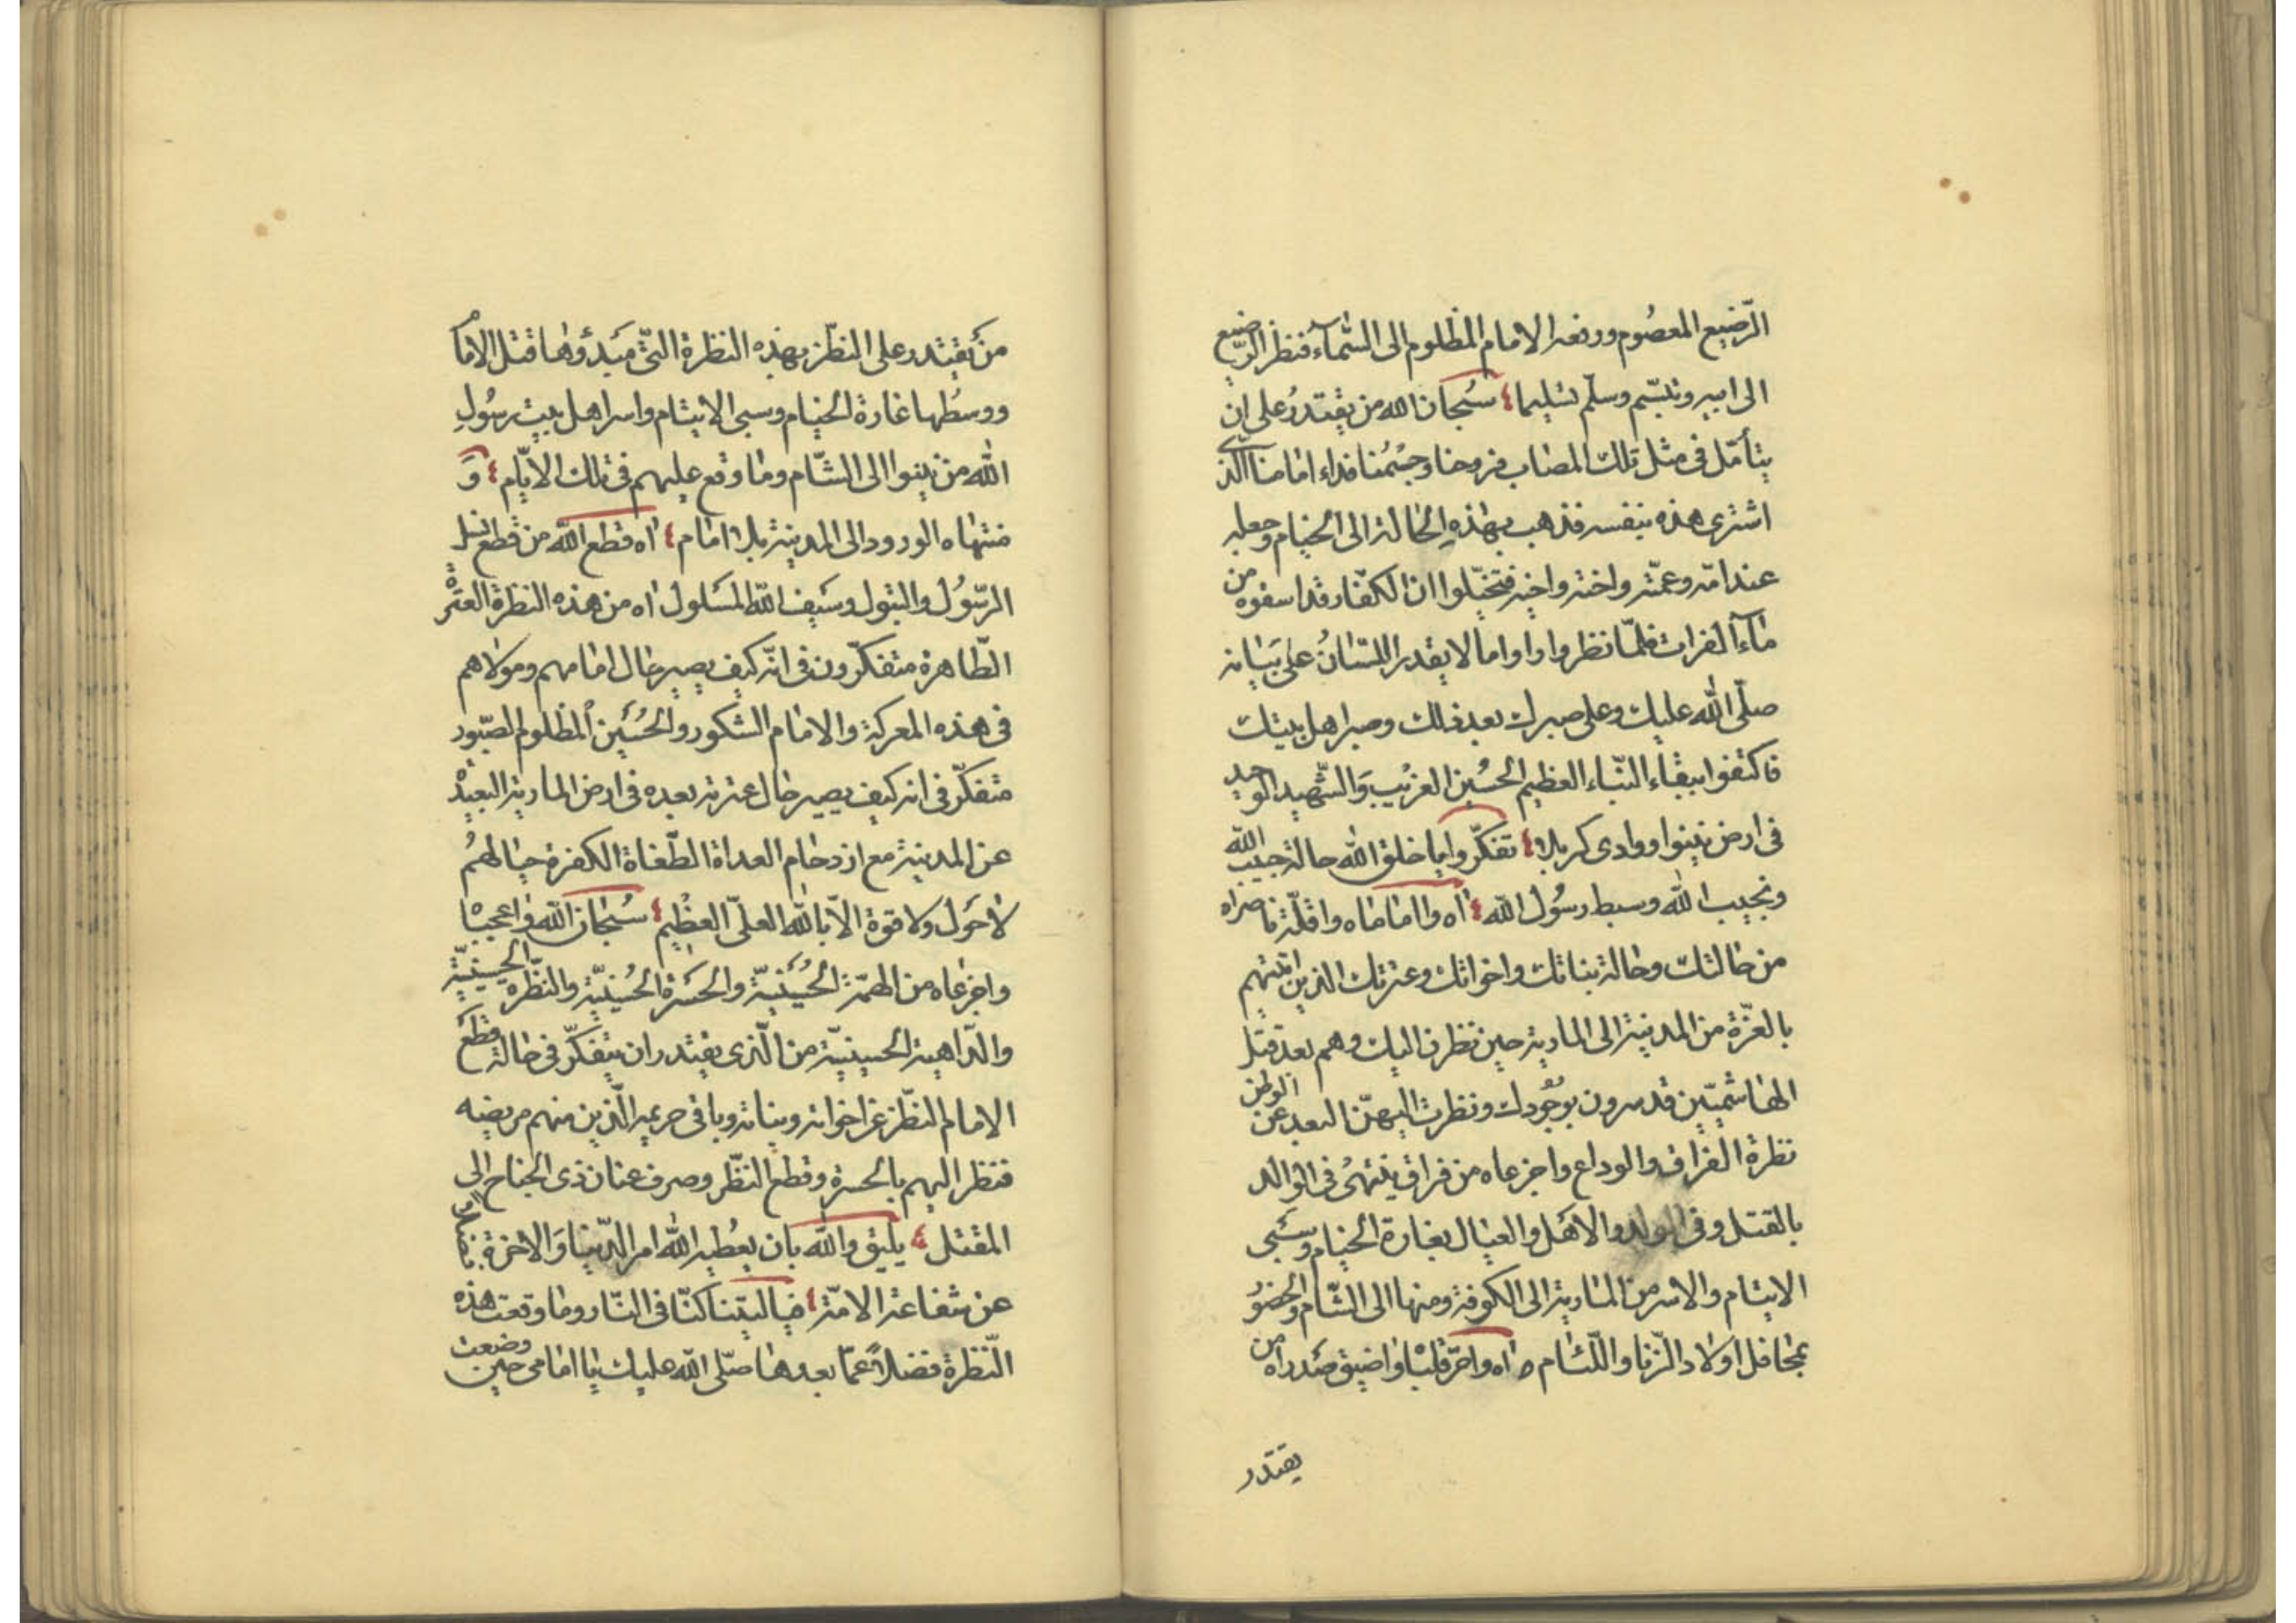 الرّضيع المعصُوم ورفعه الامام المظلوم الى السّمآء فنظر الرّضيع
الى ابيه وتبسّم وسلّم تسليما سُبحان الله من يقتدرُ على ان
يتأمّل فى مثل تلك المصاب فروحنا وجسمُنا فداء امامنا الّذى
اشترى هذه بنفسه فذهب بهذهِ الحالة الى الخيام وجعله
عند امّه وعمّته واخته واخيه فتخيّلوا ان الكفّار قد اسقوه من
مآء الفرات فلمّا نظروا راوا ما لا يقدر اللسّانُ على بَيانه
صلّى اللّٰه عليك وعلى صبرك بعد ذلك وصبر اهل بيتك
فاكتفوا ببقاء النّباء العظيم الحسُين الغريْب وَالشّهيد الوحيد
فى ارض نينوا ووادى كربلا تفكّروا يا خلق اللّٰه حالة حبيب الله
ونجيب اللّٰه وسبط رسُول اللّه اٰه وا اماماه واقلّة ناصراه
من حالتك وحالة بناتك واخواتك وعترتك الذين اتيتهم
بالعزّة من المدينة الى المارية حين نظرن اليك وهم بعد قتل
الهاشميّين قد سرون بوجُودك ونظرت اليهنّ البعد عن الوطن
نظرة الفراق والوداع واجزعاه من فراق ينتهىُ فى الوالد
بالقتل وفى الولد والاهَل والعيال بغارة الخيام وسَبى
الايتام والاسر من المارية الى الكوفة ومنها الى الشّام والحضوُ
بمحافل اولاد الزّنا واللّئام اٰه واحرّ قلباْ واضيق صَدراْه من
يقتدر
من يَقتدر على النظّر بهذه النظرة التىّ مَبدؤهٰا قتل الامام
ووسطُها غارة الخيام وسبى الايتام واسر اهل بيت رسُولِ
اللّٰه من نينوا الى الشّام وما وقع عليهم فى تلك الايّام وَ
منتهاه الورود الى المدينة بلا امام اٰه قطع اللّه من قطع نسل
الرّسوُل والبتول وسَيف اللّه المسَلول اٰه من هذه النظرة العترة
الطّاهرة متفكّرون فى انّه كيف يصير حال امامهم ومولاهم
فى هذه المعركة والامام الشكور والحُسَين المظلوم الصّبور
متفكّر فى انه كيف يصير حال عترته بعده فى ارض المارية البعيدة
عن المدينة مع ازدحام العداة الطّغاة الكفرة حيالهمُ
لا حَول ولا قوة الاّ باللّٰه العلىّ العظيم سُبحان اللّٰه واعجباْه
واجزعاه من الهمّة الحُسَينيّة والحسَرة الحُسينيّة والنظّرة الحسينيّة
والدّاهية الحسينيّة من الّذى يقتدر ان يتفكّر فى حالة قطَع
الامام النظّر عن اخواته وبناته وباقى حريمه الّذين منهم مريضه
فنظر اليهم بالحسرة وقطع النظّر وصرف عنان ذى الجناح الى
المقتل يليق واللّٰه بان يعُطيه اللّٰه امر الدّنيا وَالاخرة
عن شفاعة الامّة فياليتنا كنّا فى النّار وما وقعت هذه
النّظرة فضلاً عمّا بعدها صلّى اللّٰه عليك يا امامى حين وضعت